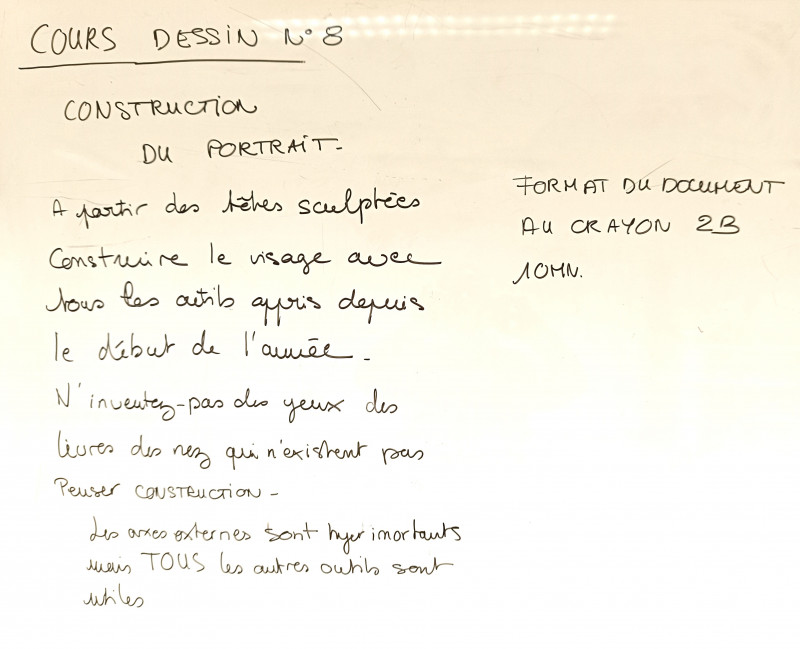 COURS DESSIN N° 8
CONSTRUCTION
DU PORTRAIT-
A partir des têtes sculptées
Construire le visage avec
tous les outils appris depuis
le début de l'année-
N'inventez-pas des yeux des
lèvres des nez qui n'existent pas
Penser CONSTRUCTION-
Les axes externes sont hyper imortants
mais TOUS les autres outils sont
utiles
FORMAT DU DOCUMENT
AU CRAYON 2B
10MN.